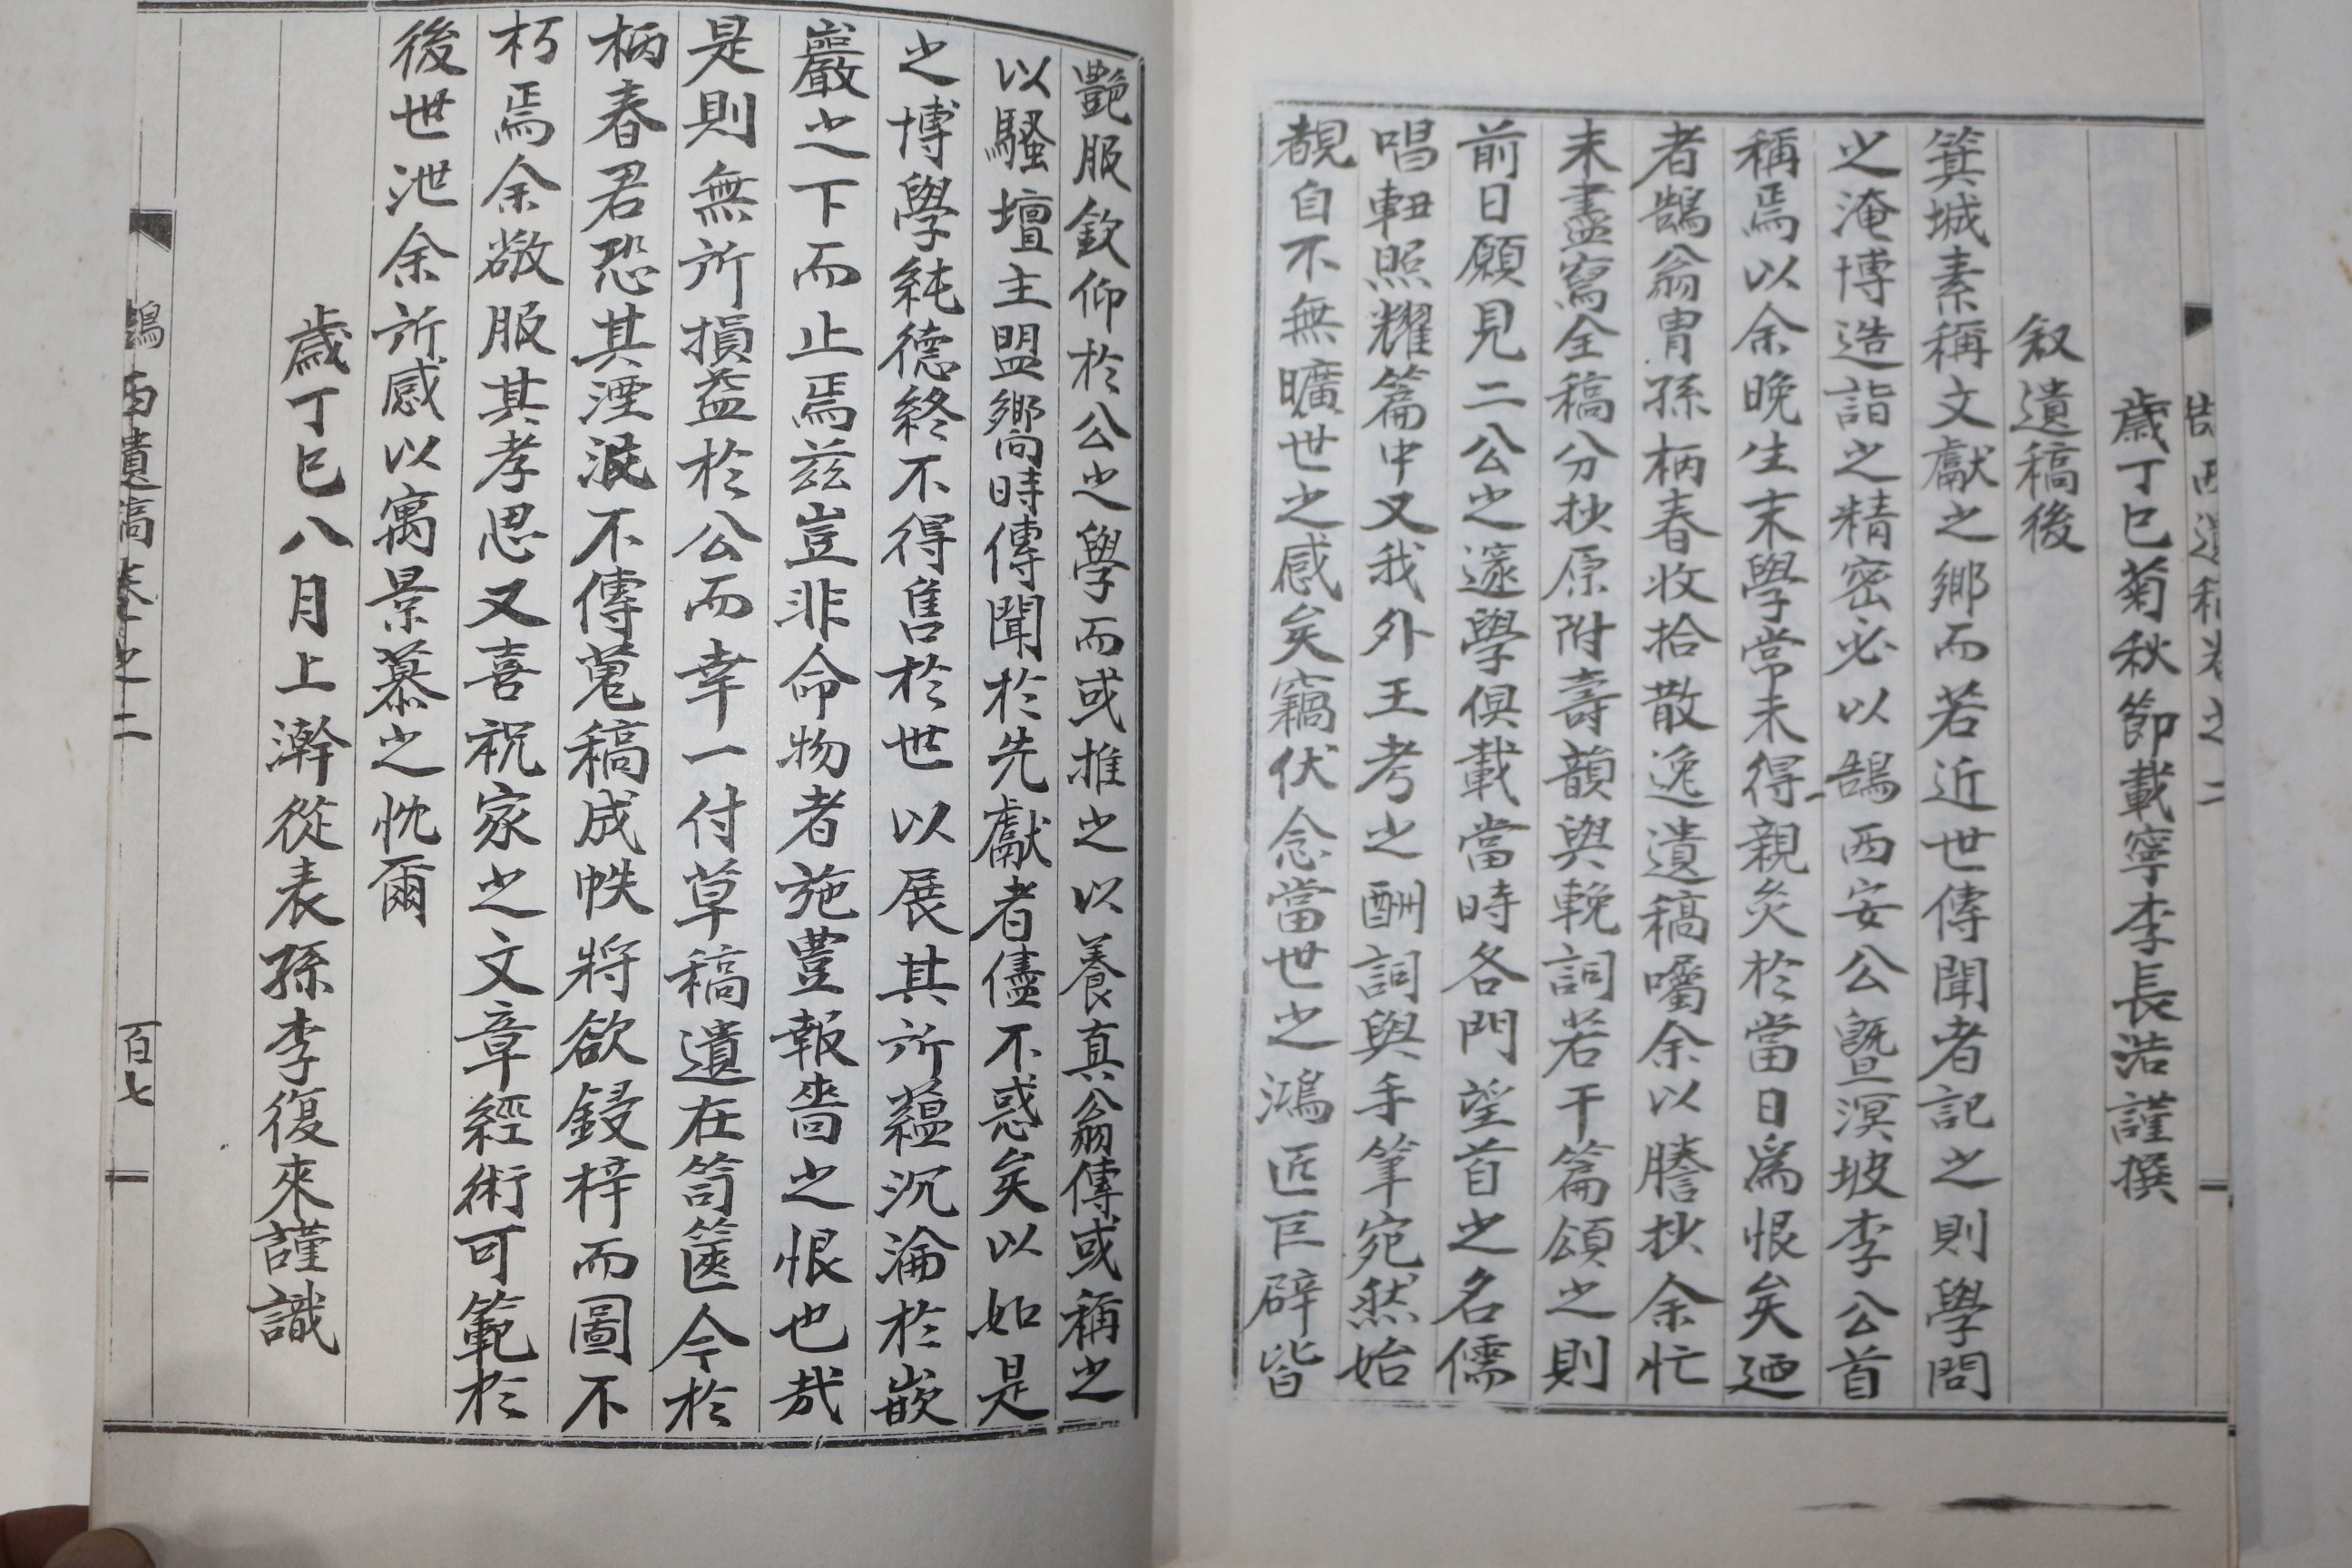 歲丁巳菊秋節載寧李長浩謹撰
叙遺稿後
箕城素稱文獻之鄉而若近世傳聞者記之則學問
之淹博造詣之精密必以鵠西安公暨溟坡李公首
稱焉以余晚生末學常未得親炙於當日爲恨矣廼
者鵠翁胄孫柄春收拾散逸遺稿囑余以謄抄余忙
未盡寫全稿分抄原附壽韻與輓詞若干篇頌之則
前日願見二公之邃學俱載當時各門望首之名儒
唱軔照耀篇中又我外王考之酬詞與手筆宛然始
覩自不無曠世之感矣竊伏念當世之鴻匠巨辟皆
艶服欽仰於公之學而或推之以養真翁傳或稱之
以騷壇主盟嚮時傳聞於先獻者儘不惑矣以如是
之博學純德終不得售於世以展其所蘊沉淪於嵌
巖之下而止焉茲豈非命物者施豊報嗇之恨也哉
是則無所損益於公而幸一付草稿遺在笥篋今於
柄春君恐其湮泯不傳蒐稿成帙將欲鋟梓而圖不
朽焉余敬服其孝思又喜祝家之文章經術可範於
後世泄余所感以寓景慕之忱爾
歲丁巳八月上澣從表孫李復來謹識
鵠西遺稿卷之二
百七